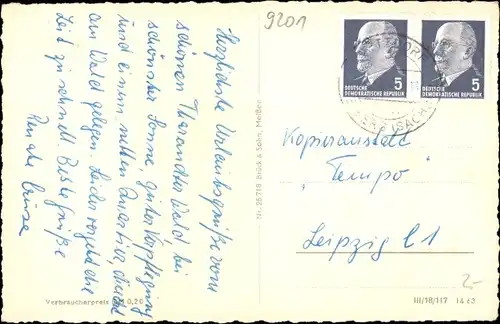 9201
Herzlichste Urlaubsgrüße vom
schönen Tharandter Wald bei
schönster Sonne, guter Verpflegung
und einem netten Quartier direkt
am Wald gelegen. Leider vergeht die
Zeit zu schnell. Beste Grüße
Renate
Verbraucherpreis 0,20
Nr. 25718 Brück & Sohn, Meißen
5
DEUTSCHE
DEMOKRATISCHE REPUBLIK
5
DEUTSCHE
DEMOKRATISCHE REPUBLIK
Kopieranstalt
"Tempo"
Leipzig C1
2,-
III/18/117